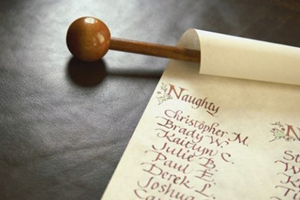 Naughty
Christopher M.
Brady W.
Kaitlyn C.
Julie B.
Paul D.
Derek L.
Joshua